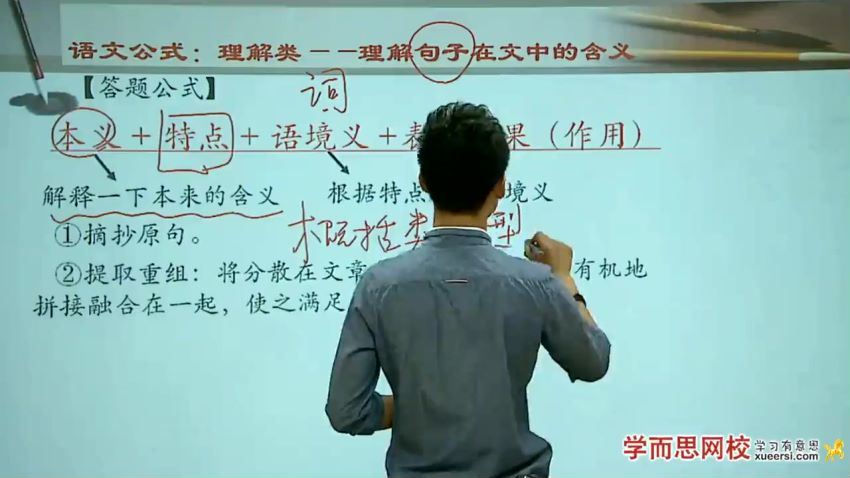 语文公式：理解类——理解句子在文中的含义
【答题公式】
词
本义+特点+语境义+表 果（作用）
解释一下本来的含义 根据特点 境义
①摘抄原句。
概括类 型
②提取重组：将分散在文章 有机地
拼接融合在一起，使之满足
学而思网校 学习有意思
xueersi.com